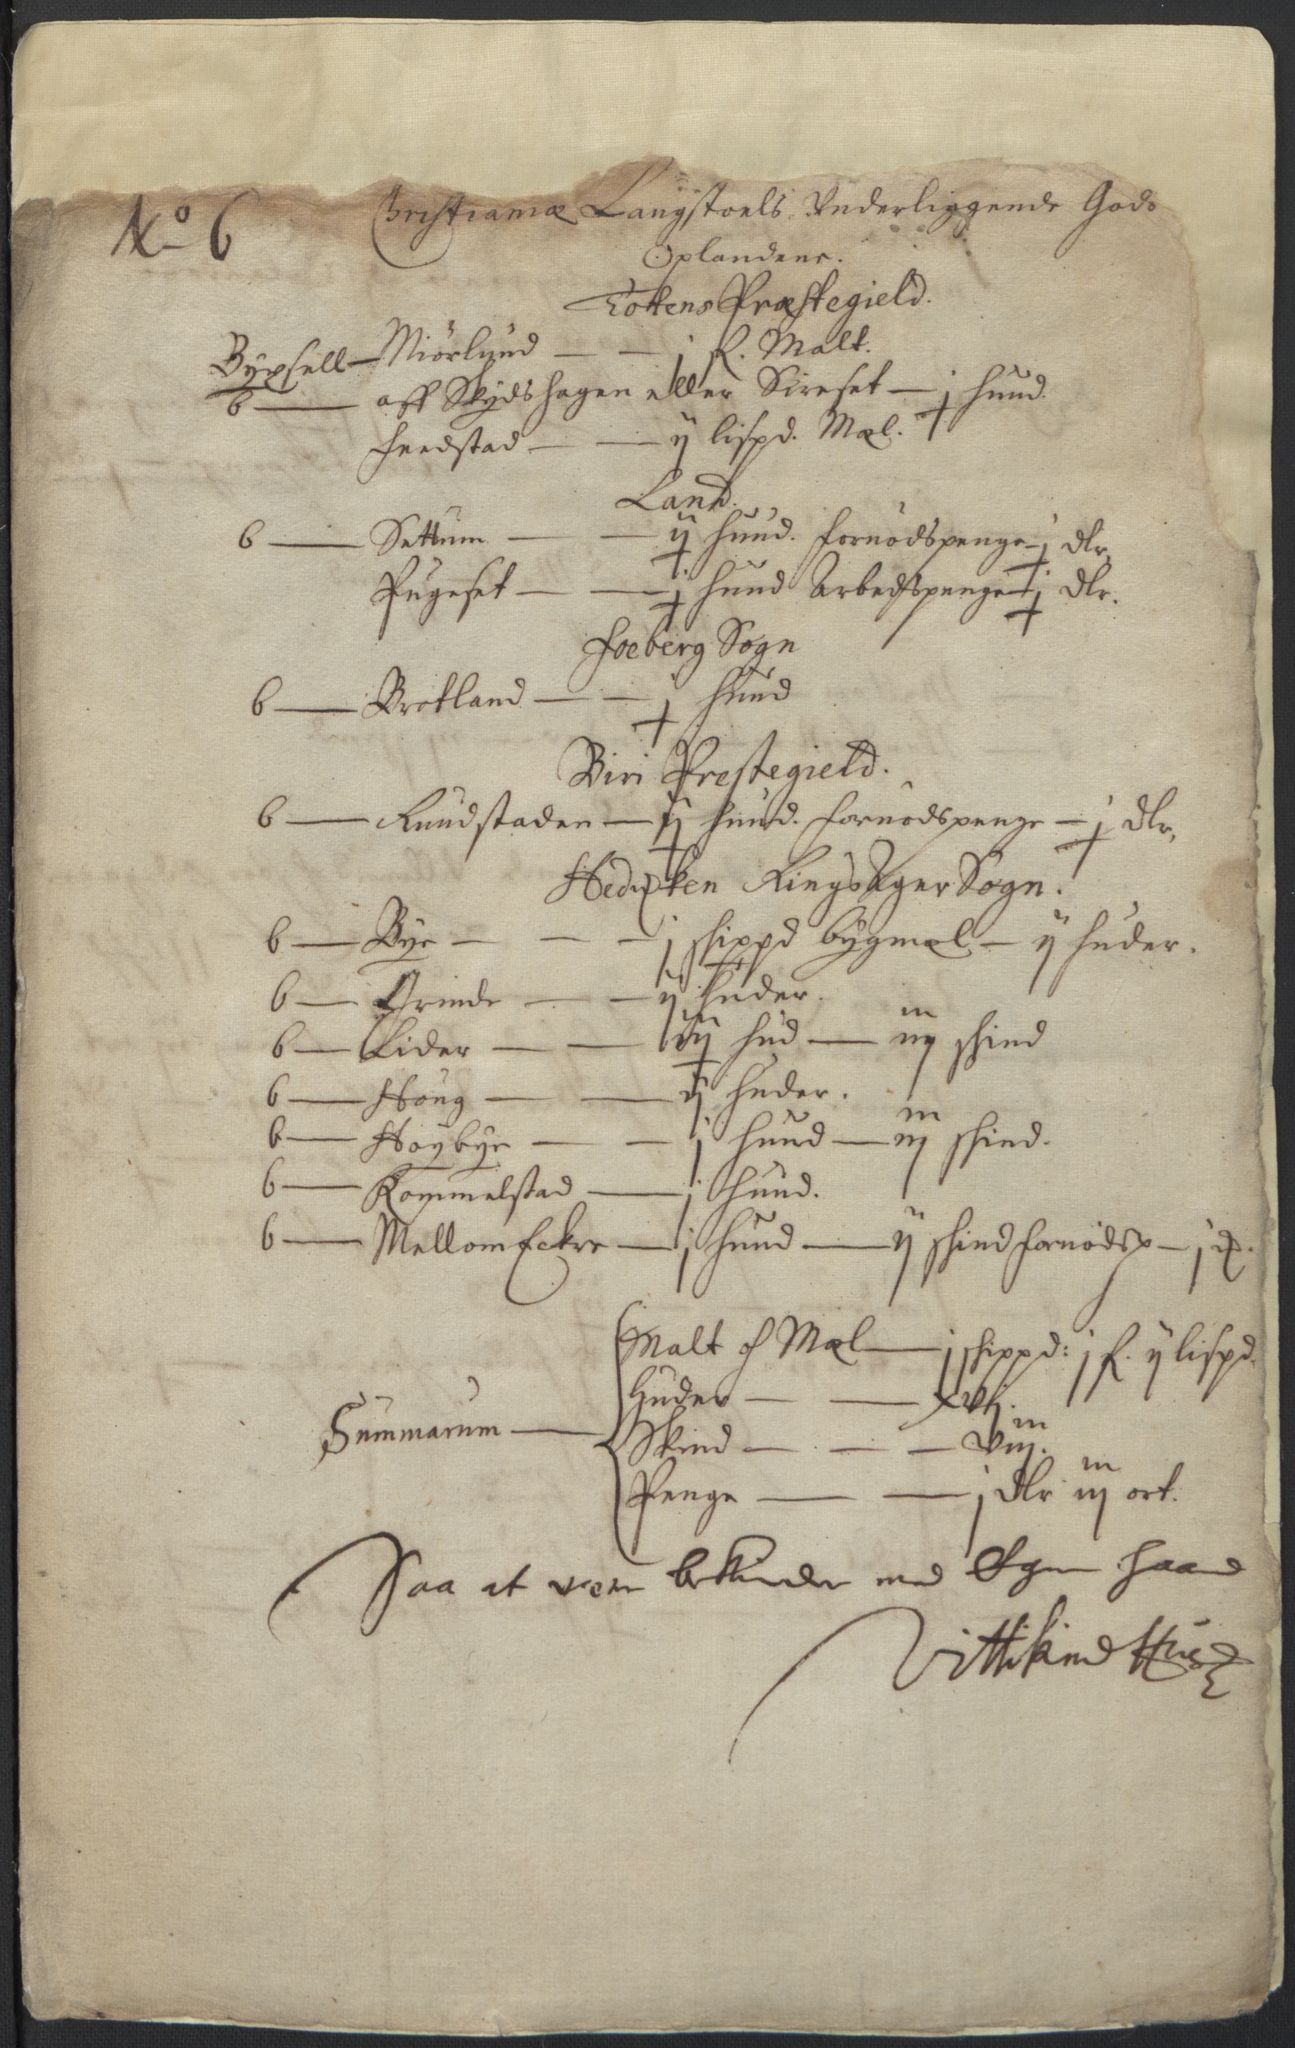 No 6
Christianiæ Laugstoels Underliggende Gods
Oplandene.
Tottens Præstegield.
Bÿxsell — Miörlund — — j f. Malt.
b — aff Skÿdshagen eller Sireset — j huud
Feedstad — — ij lispd. Mæl.
Land.
b — Settum — — ij huud. fornödspenge — j dlr.
Pugeset — — j huud Arbedspenge j dlr.
Foeberg Sogn
b — Brotland — — j huud
Biri Prestegield.
b — Ruudstaden — ij huud. fornödspenge — j dlr.
Hedmarken Ringsager Sogn.
b — Bye — — — j skippd bÿgmæl — ij huder.
b — Grinde — — ij huder.
b — Lider — — iij hud — iiij skind
b — Houg — — ij huder.
b — Hoybÿe — — j huud — iij skind.
b — Kommelstad — j huud.
b — Mellom Eckre — j huud — ij skind fornödsp — j
Summarum — Malt och Mæl — j skippd: j f. ij lispd.
Huder — — xvj.
Skind — — viij.
Penge — — j dlr iij ort.
Saa at være bekiender med Egen haand
Vittikind Hus